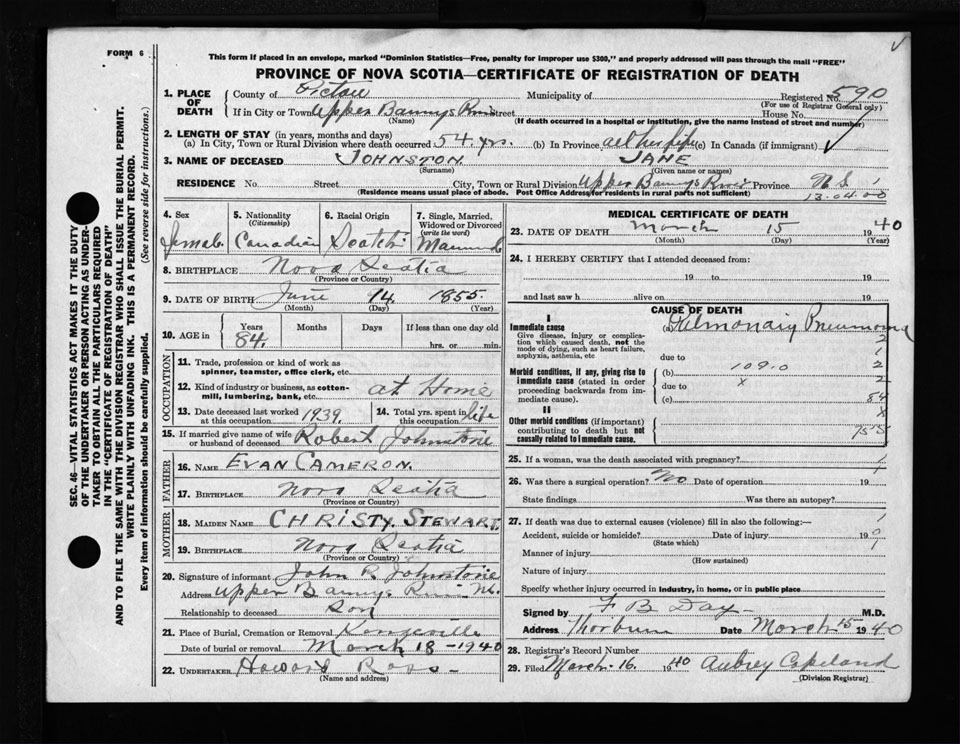 FORM 6
This form if placed in an envelope, marked "Dominion Statistics—Free, penalty for improper use $300," and properly addressed will pass through the mail "FREE"
PROVINCE OF NOVA SCOTIA—CERTIFICATE OF REGISTRATION OF DEATH
1. PLACE OF DEATH
County of Pictou Municipality of Registered No. 590
(For use of Registrar General only)
If in City or Town Upper Barnys River Street House No.
(Name) (If death occurred in a hospital or institution, give the name instead of street and number)
2. LENGTH OF STAY (in years, months and days)
(a) In City, Town or Rural Division where death occurred 54 yrs. (b) In Province all her life (c) In Canada (if immigrant)
3. NAME OF DECEASED JOHNSTON JANE
(Surname) (Given name or names)
RESIDENCE No. Street City, Town or Rural Division Upper Barnys River Province N.S.
(Residence means usual place of abode. Post Office Address for residents in rural parts not sufficient)
13.04.00
4. Sex Female
5. Nationality (Citizenship) Canadian
6. Racial Origin Scotch
7. Single, Married, Widowed or Divorced (write the word) Married
8. BIRTHPLACE Nova Scotia
(Province or Country)
9. DATE OF BIRTH June 14, 1855.
(Month) (Day) (Year)
10. AGE in Years 84. Months Days If less than one day old
hrs. or min.
OCCUPATION
11. Trade, profession or kind of work as spinner, teamster, office clerk, etc.
12. Kind of industry or business, as cotton-mill, lumbering, bank, etc. at Home
13. Date deceased last worked at this occupation 1939.
14. Total yrs. spent in this occupation life
15. If married give name of wife or husband of deceased Robert Johnstone
FATHER
16. NAME EVAN CAMERON.
17. BIRTHPLACE Nova Scotia
(Province or Country)
MOTHER
18. MAIDEN NAME CHRISTY STEWART.
19. BIRTHPLACE Nova Scotia
(Province or Country)
20. Signature of informant John R. Johnstone
Address Upper Barnys River N.S.
Relationship to deceased Son
21. Place of Burial, Cremation or Removal Kenzieville
Date of burial or removal March 18 - 1940
22. UNDERTAKER Howard Ross
(Name and address)
MEDICAL CERTIFICATE OF DEATH
23. DATE OF DEATH March 15 1940
(Month) (Day) (Year)
24. I HEREBY CERTIFY that I attended deceased from:
19 to 19
and last saw h alive on 19
CAUSE OF DEATH
I
Immediate cause
Give disease, injury or complication which caused death, not the mode of dying, such as heart failure, asphyxia, asthenia, etc
(a) Pulmonary Pneumonia
due to
Morbid conditions, if any, giving rise to immediate cause (stated in order proceeding backwards from immediate cause).
(b) 109.0
due to x
(c)
II
Other morbid conditions (if important) contributing to death but not causally related to immediate cause.
2
1
2
2
84
x
155
25. If a woman, was the death associated with pregnancy?
26. Was there a surgical operation? No Date of operation 19
State findings Was there an autopsy?
27. If death was due to external causes (violence) fill in also the following:—
Accident, suicide or homicide? Date of injury 19
(State which)
Manner of injury
(How sustained)
Nature of injury
Specify whether injury occurred in industry, in home, or in public place
Signed by F B Day M.D.
Address Thorburn Date March 15 1940
28. Registrar's Record Number
29. Filed March 16. 1940 Aubrey Copeland
(Division Registrar)
SEC. 46—VITAL STATISTICS ACT MAKES IT THE DUTY
OF THE UNDERTAKER OR PERSON ACTING AS UNDER-
TAKER TO OBTAIN ALL THE PARTICULARS REQUIRED
IN THE "CERTIFICATE OF REGISTRATION OF DEATH"
AND TO FILE THE SAME WITH THE DIVISION REGISTRAR WHO SHALL ISSUE THE BURIAL PERMIT.
WRITE PLAINLY WITH UNFADING INK. THIS IS A PERMANENT RECORD.
Every item of information should be carefully supplied. (See reverse side for instructions.)